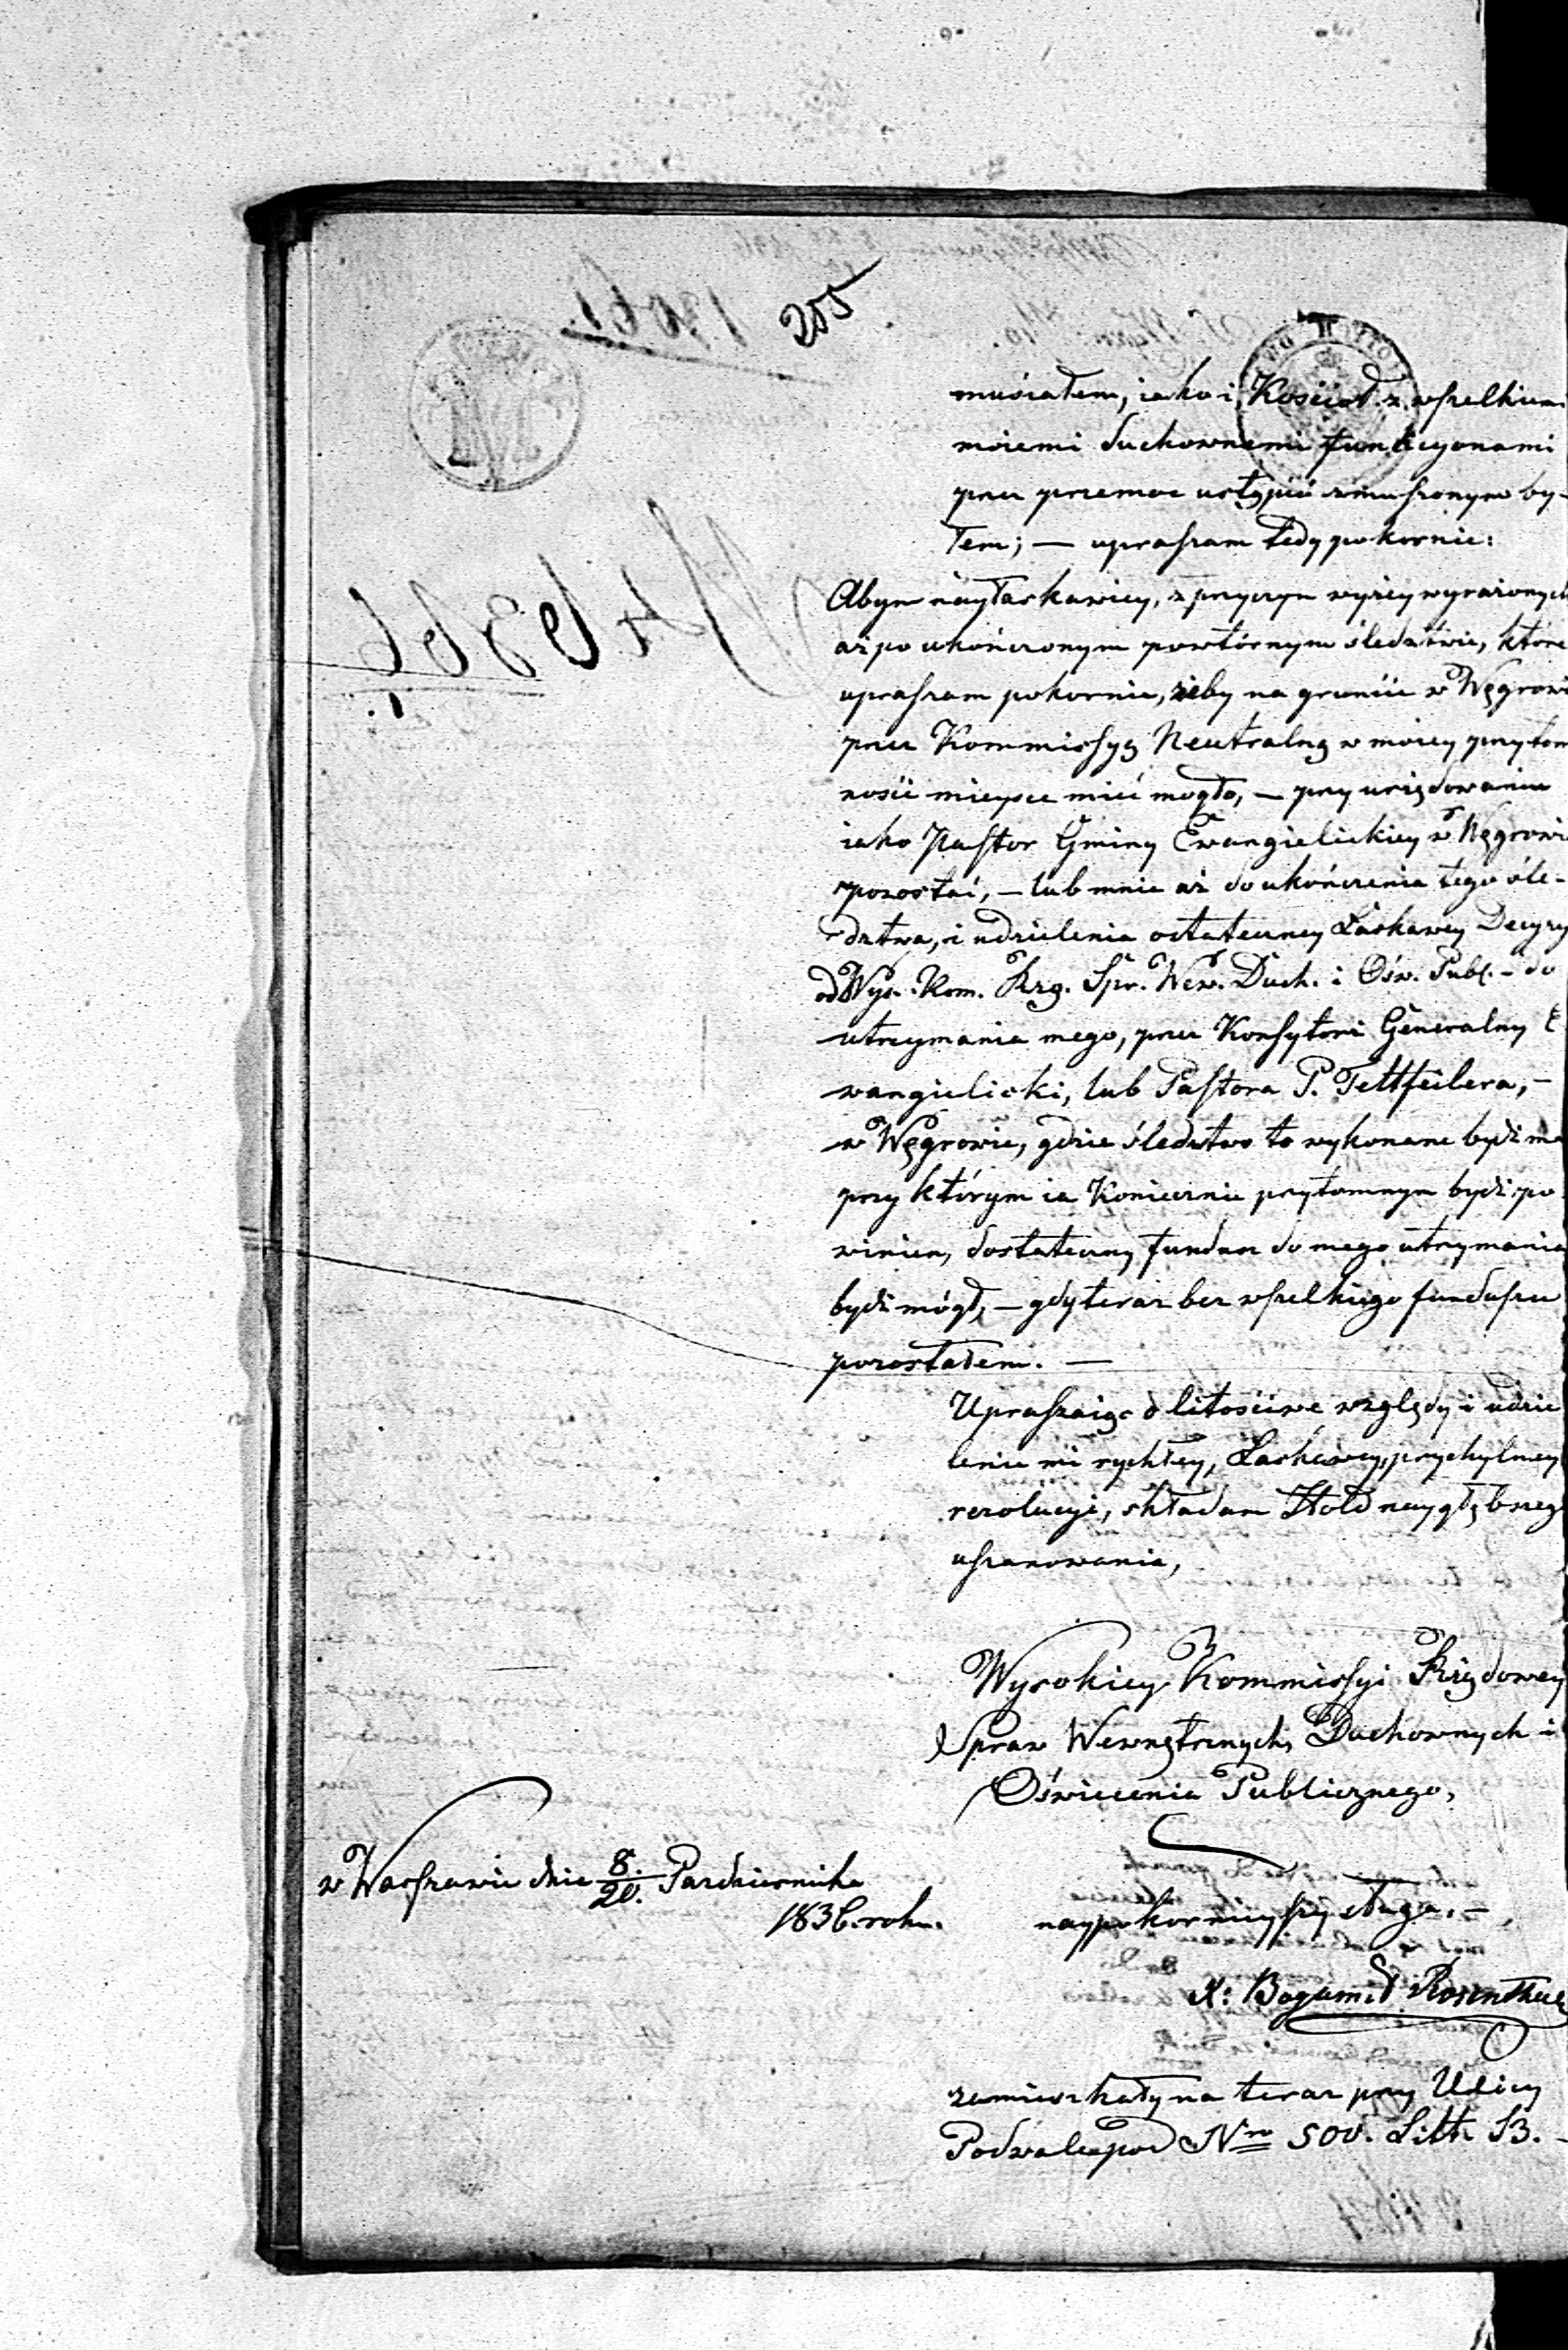 255
musiałem, iako i Kościoł z wszelkiem
moiemi duchownemi funkcyonami
przez przemoc ustąpić zmuszonym by-
łem; — upraszam tedy pokornie:
Abym nayłaskawiey, z przyczyn wyżey wyrażonych
aż po ukończonym powtórnym śledztwie, które
upraszam pokornie, żeby na gruncie w Węgrowi
przez Kommissyą Neutralną w moiey przytom
ności mieysce mieć mogło, — przy urzędowaniu
iako Pastor Gminy Ewangielickiey w Węgrowi
pozostać, — lub mnie aż do ukończenia tego śle-
dztwa, i udzielenia ostateczney Łaskawey Decyzy
od Wys. Kom. Rzą. Spr. Wew. Duch. i Ośw. Publ. – do
utrzymania mego, przez Konsystorz Generalny E
wangielicki, lub Pastora P. Tettfeilera, –
w Węgrowie, gdzie śledztwo to wykonane bydź ma
przy którym ia Koniecznie przytomnym bydź po
winien, dostateczny fundusz do mego utrzymania
bydź mógł, — gdy teraz bez wszelkiego funduszu
pozostałem. —
Upraszaiąc o litościwe względy i udzie
lenie mi rychłey, Łaskawey, przychylney
rezolucyi, składam Hołd naygłębszeg
uszanowania,
Wysokiey Kommissyi Rządowey
Spraw Wewnętrznych, Duchownych i
Oświecenia Publicznego,
w Warszawie dnia 8./20. Pazdziernika
1836. roku.
naypokornieyszy sługa. –
X: Bogumił Rosenthal
zamieszkały na teraz przy Ulicy
Podwale pod Nro 500. Litt. B. –